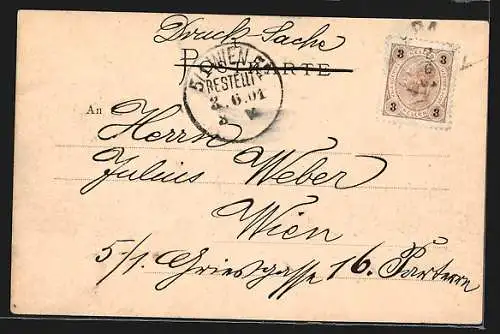 Druck-Sache
POSTKARTE
5/1 WIEN
BESTELLT
2.6.01
3 3
3 3
An Herrn
Julius Weber
Wien
5/1. Griesgasse 16. Partern